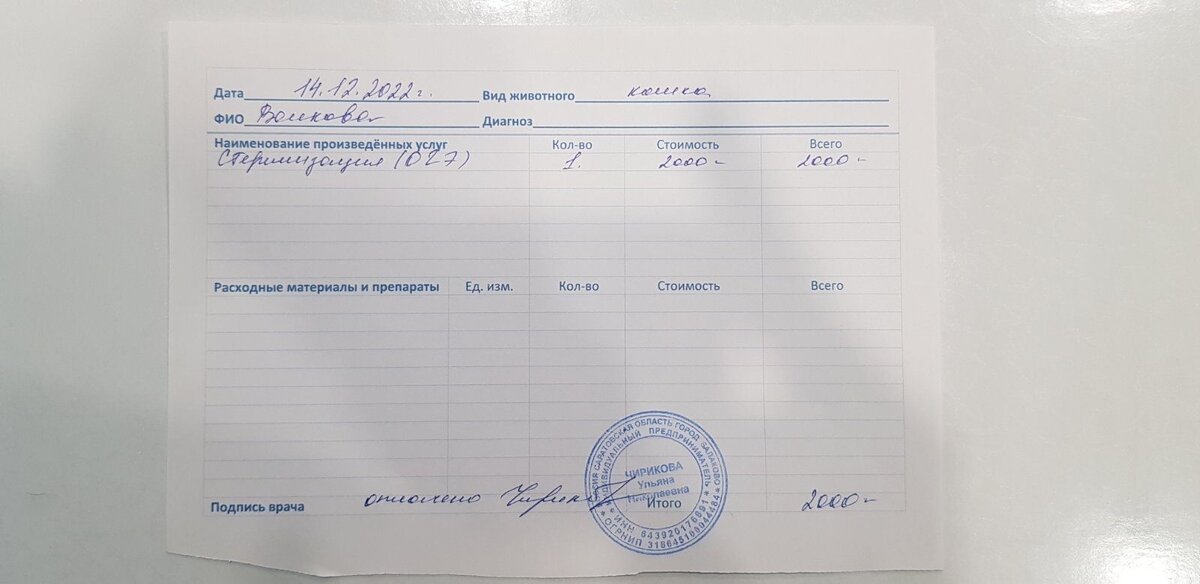 Дата 14.12.2022г. Вид животного кошка
ФИО Волкова Диагноз
Наименование произведённых услуг Кол-во Стоимость Всего
Стерилизация (ОГЭ) 1. 2000- 2000-
Расходные материалы и препараты Ед. изм. Кол-во Стоимость Всего
Подпись врача оплачено Итого 2000-
РОССИЯ САРАТОВСКАЯ ОБЛАСТЬ ГОРОД БАЛАКОВО
ИНДИВИДУАЛЬНЫЙ ПРЕДПРИНИМАТЕЛЬ
ЧИРИКОВА
Ульяна
Николаевна
ИНН 643920176691
ОГРНИП